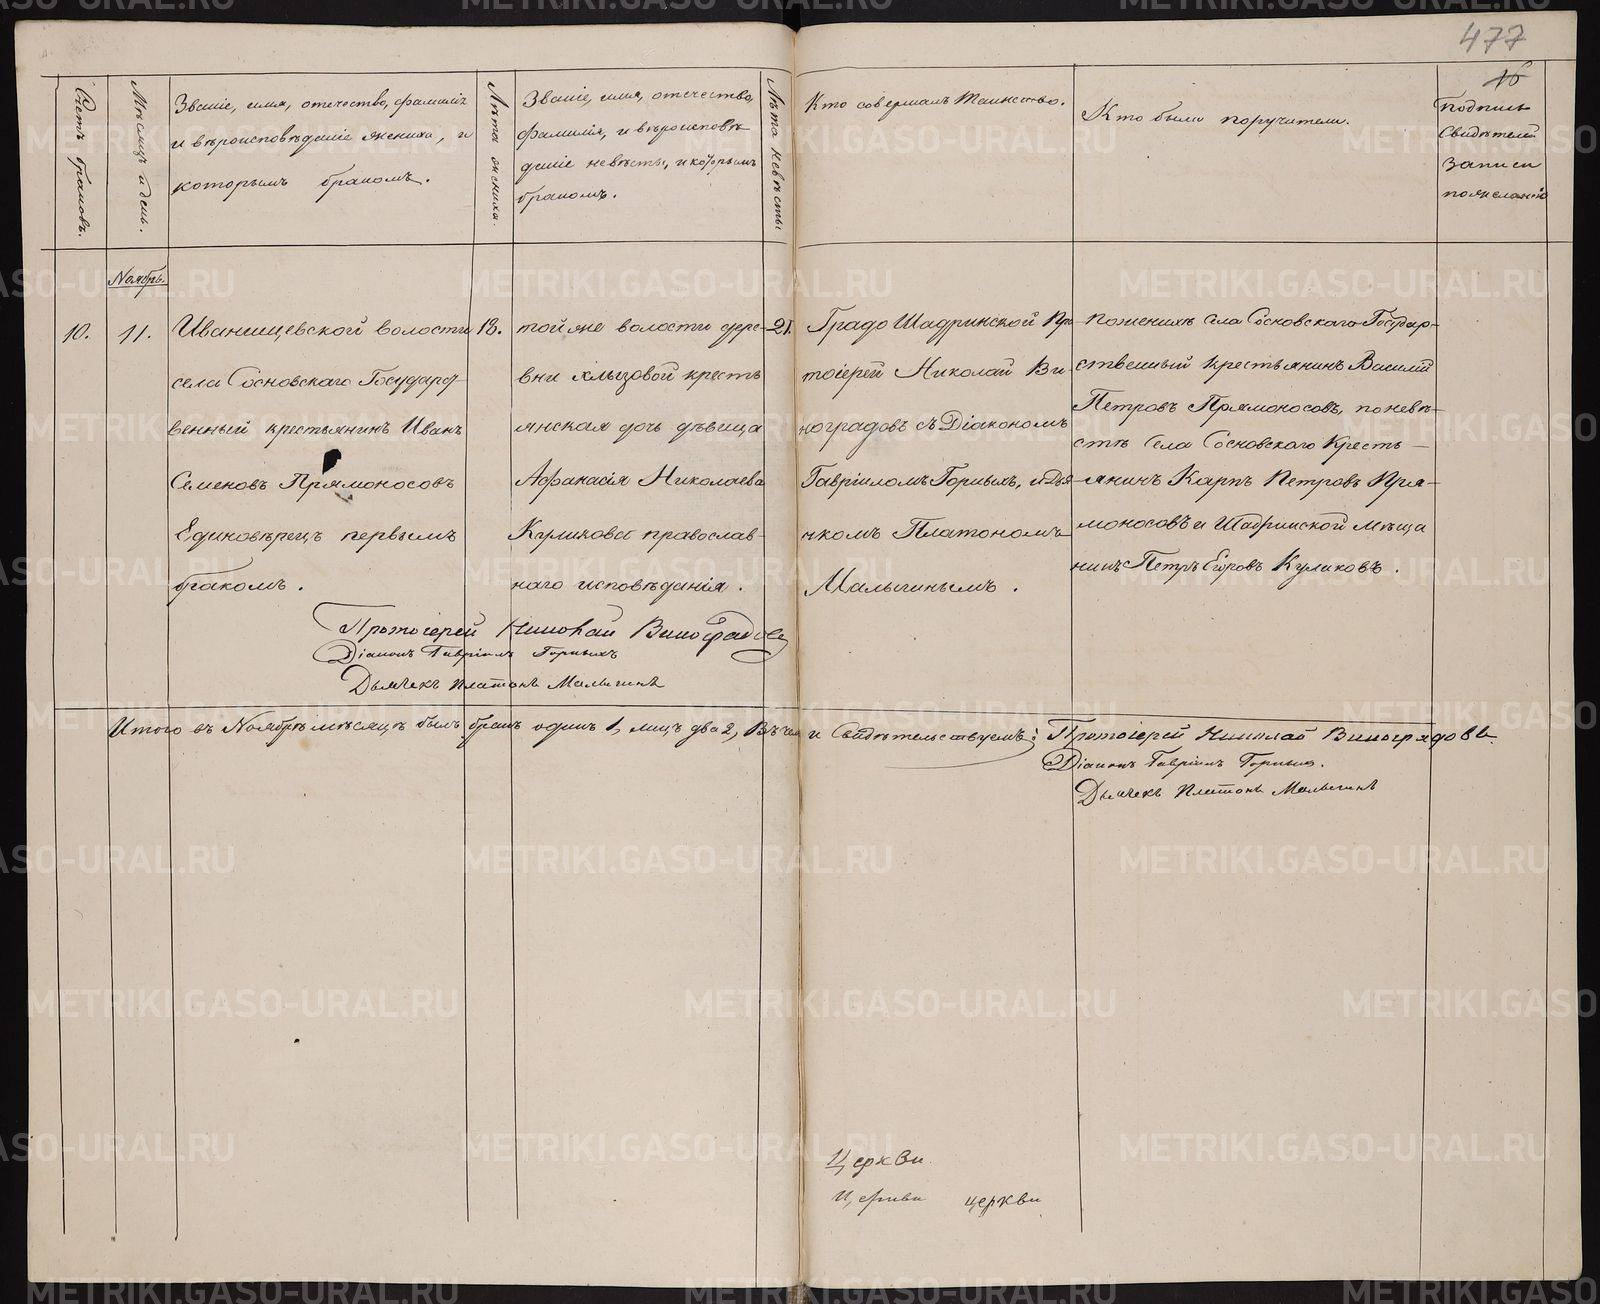 477
16
Счетъ браковъ.
Мѣсяцъ и день.
Званіе, имя, отечество, фамилія
и вѣроисповѣданіе жениха, и
которымъ бракомъ.
Лѣта жениха.
Званіе, имя, отечество,
фамилія, и вѣроисповѣ
даніе невѣсты, и которымъ
бракомъ.
Лѣта невѣсты
Кто совершалъ Таинство.
Кто были поручители.
Подпись
Свидѣтелей
записи
по желанію
Ноябрь.
10.
11.
Иванищевской волости
села Сосновскаго Государст
венный крестьянинъ Иванъ
Семеновъ Прямоносовъ
Единовѣрецъ первымъ
бракомъ.
18.
той же волости дере-
вни Хлызовой кресть
янская дочь дѣвица
Афанасія Николаева
Куликова православ-
наго исповѣданія.
21.
Градо Шадринской Про
тоіерей Николай Ви
ноградовъ съ Діакономъ
Гавріиломъ Горныхъ, и Дья
чкомъ Платономъ
Малыгинымъ.
По женихѣ Села Сосновскаго Государ-
ственный крестьянинъ Василій
Петровъ Прямоносовъ, по невѣ-
стѣ Села Сосновскаго Кресть-
янинъ Карпъ Петровъ Пря-
моносовъ и Шадринской мѣща
нинъ Петръ Егоровъ Куликовъ.
Протоіерей Николай Виноградовъ
Діаконъ Гавріилъ Горныхъ
Дьячекъ Платонъ Малыгинъ
Итого въ Ноябрѣ мѣсяцѣ былъ бракъ одинъ 1, лицъ два 2, Въ чемъ и Свидѣтельствуемъ: Протоіерей Николай Виноградовъ.
Діаконъ Гавріилъ Горныхъ.
Дьячекъ Платонъ Малыгинъ
Церкви.
Церкви церкви
METRIKI.GASO-URAL.RU